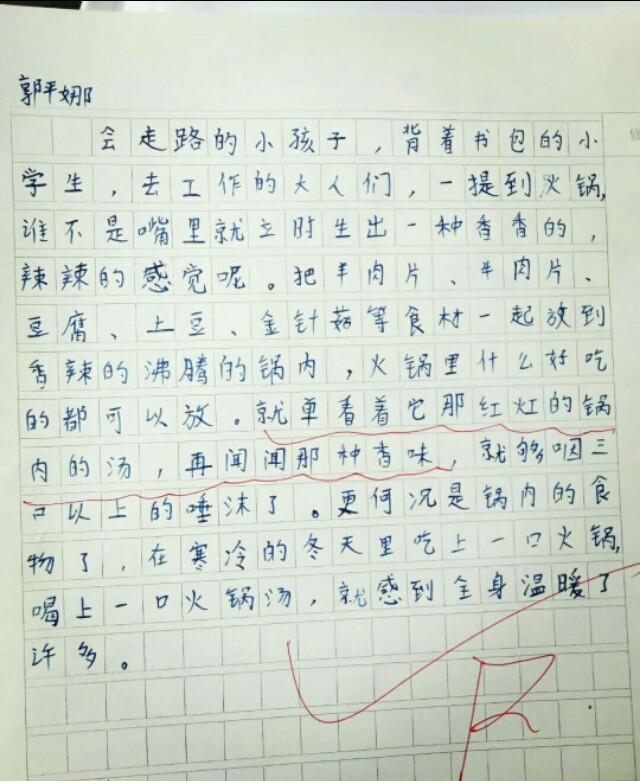 郭平娜
会走路的小孩子，背着书包的小
学生，去工作的大人们，一提到火锅，
谁不是嘴里就立时生出一种香香的，
辣辣的感觉呢。把羊肉片、牛肉片、
豆腐、土豆、金针菇等食材一起放到
香辣的沸腾的锅内，火锅里什么好吃
的都可以放。就单看着它那红灿的锅
内的汤，再闻闻那种香味，就够咽三
口以上的唾沫了。更何况是锅内的食
物了，在寒冷的冬天里吃上一口火锅，
喝上一口火锅汤，就感到全身温暖了
许多。